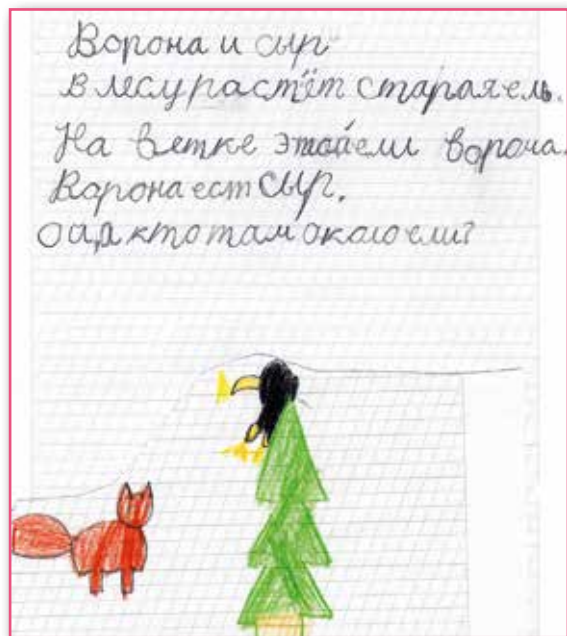 Ворона и сыр
В лесу растёт старая ель.
На ветке этой ели ворона.
Ворона ест сыр.
а кто там около ели?